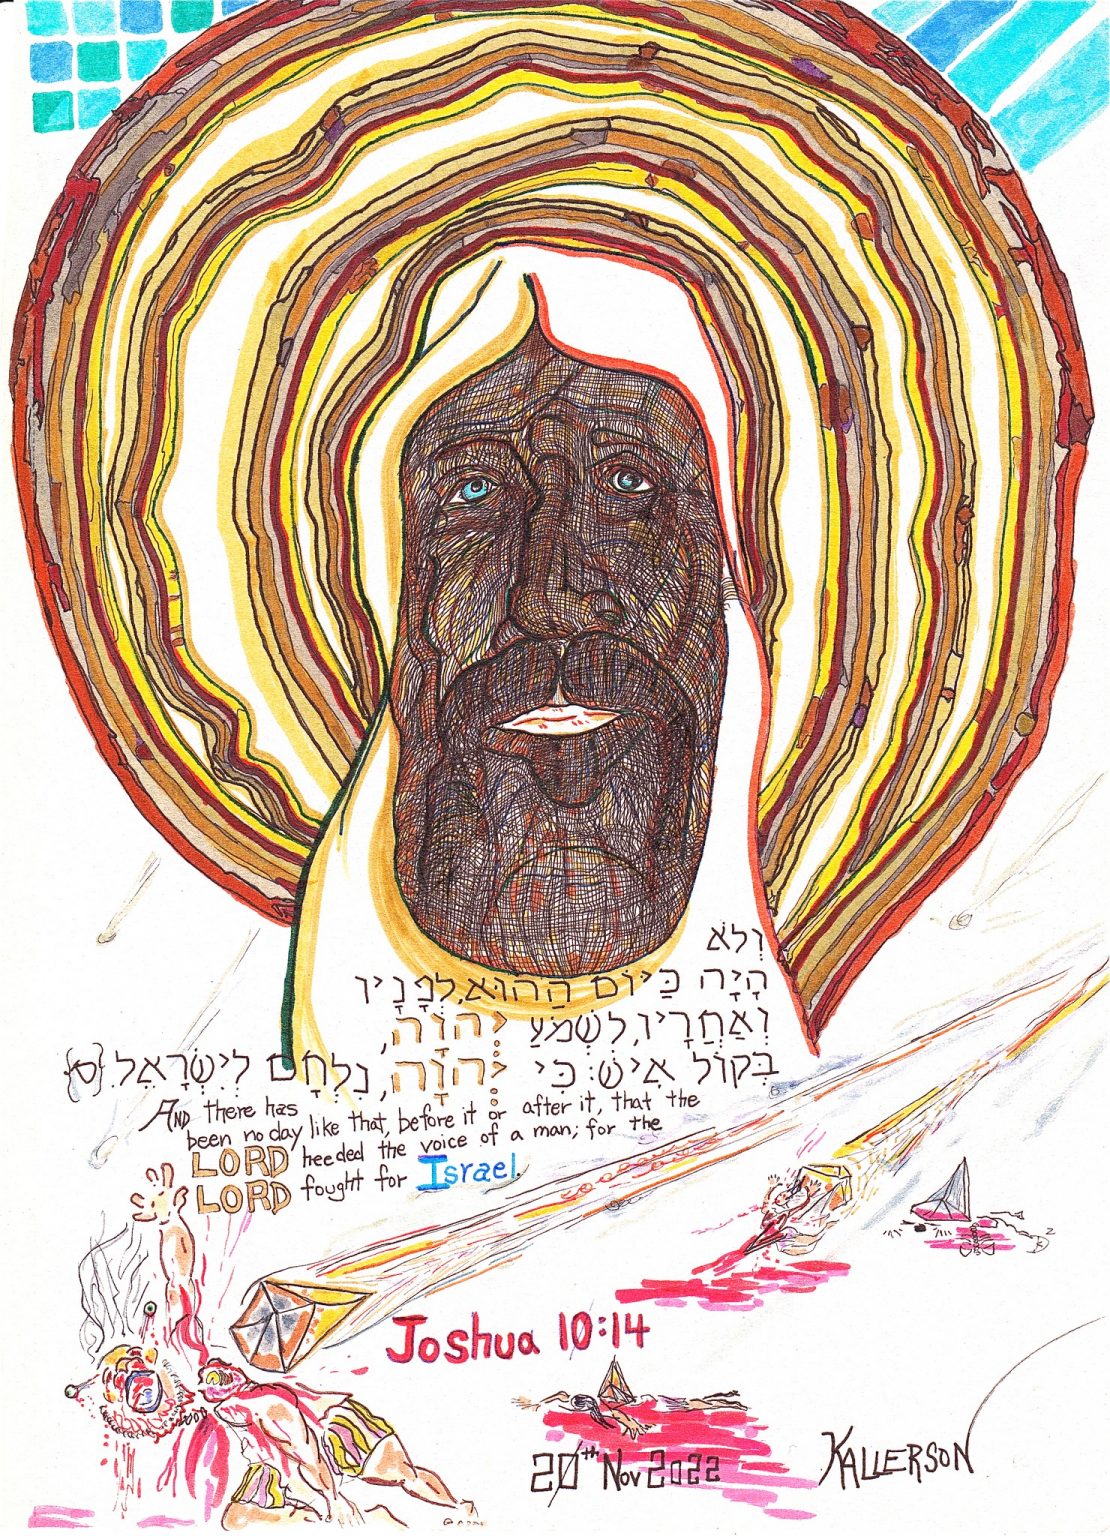 וְלֹא
הָיָה כַּיּוֹם הַהוּא, לְפָנָיו
וְאַחֲרָיו, לִשְׁמֹעַ יְהוָה,
בְּקוֹל אִישׁ: כִּי יְהוָה, נִלְחָם לְיִשְׂרָאֵל. {ס}
AND there has
been no day like that, before it or after it, that the
LORD heeded the voice of a man; for the
LORD fought for Israel
Joshua 10:14
20th Nov 2022
KALLERSON